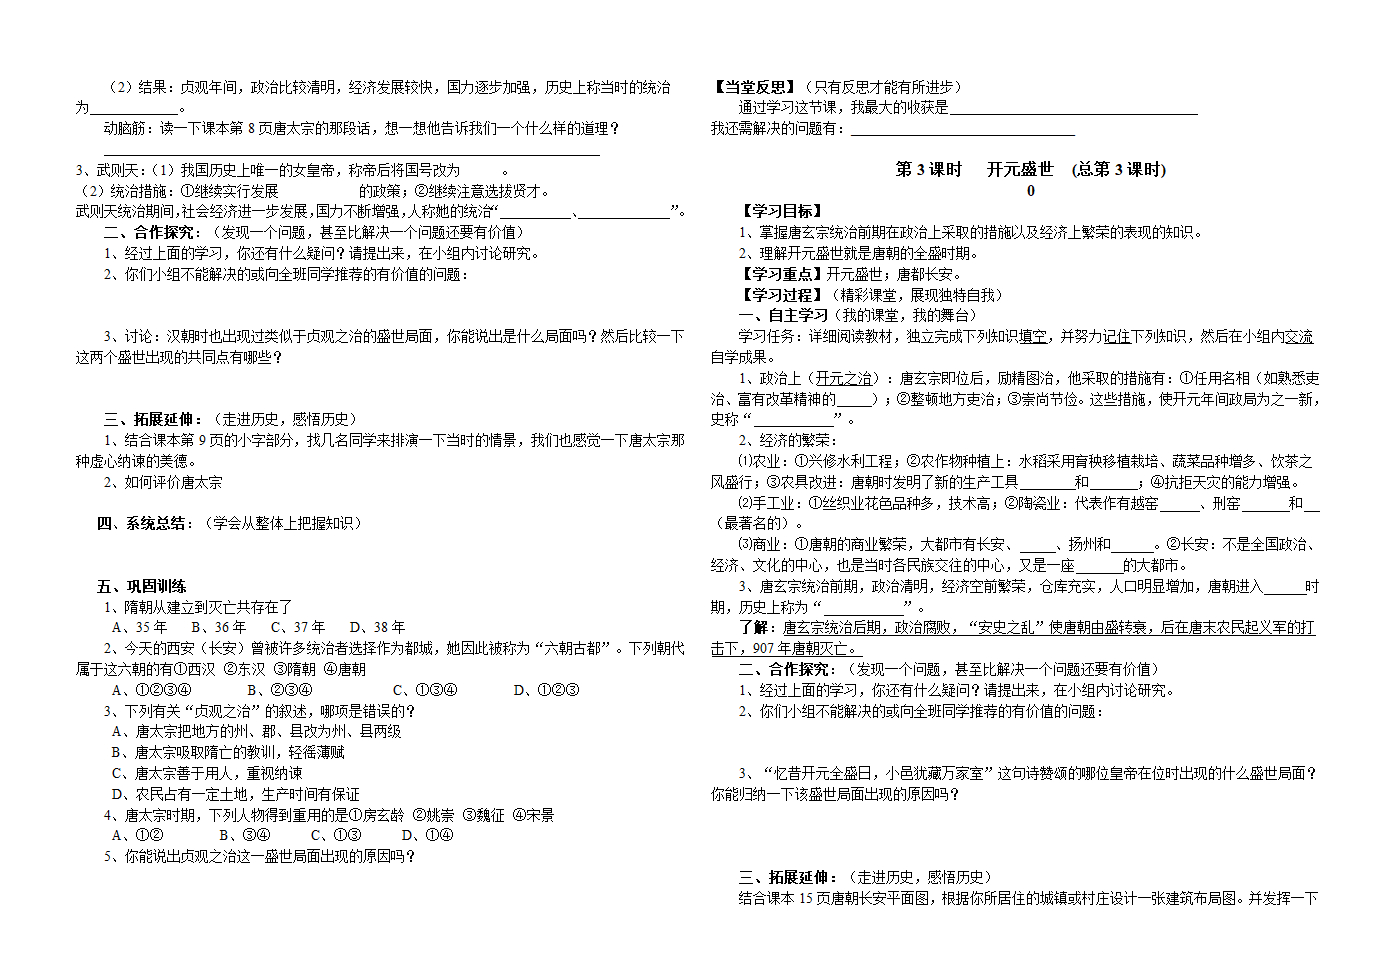 （2）结果：贞观年间，政治比较清明，经济发展较快，国力逐步加强，历史上称当时的统治
为____________。
动脑筋：读一下课本第 8 页唐太宗的那段话，想一想他告诉我们一个什么样的道理？
3、武则天：（1）我国历史上唯一的女皇帝，称帝后将国号改为      。
（2）统治措施：①继续实行发展            的政策；②继续注意选拔贤才。
武则天统治期间，社会经济进一步发展，国力不断增强，人称她的统治“__________、_____________”。
二、合作探究：（发现一个问题，甚至比解决一个问题还要有价值）
1、经过上面的学习，你还有什么疑问？请提出来，在小组内讨论研究。
2、你们小组不能解决的或向全班同学推荐的有价值的问题：
3、讨论：汉朝时也出现过类似于贞观之治的盛世局面，你能说出是什么局面吗？然后比较一下
这两个盛世出现的共同点有哪些？
三、拓展延伸：（走进历史，感悟历史）
1、结合课本第 9 页的小字部分，找几名同学来排演一下当时的情景，我们也感觉一下唐太宗那
种虚心纳谏的美德。
2、如何评价唐太宗
四、系统总结：（学会从整体上把握知识）
五、巩固训练
1、隋朝从建立到灭亡共存在了
A、35 年    B、36 年    C、37 年    D、38 年
2、今天的西安（长安）曾被许多统治者选择作为都城，她因此被称为“六朝古都”。下列朝代
属于这六朝的有①西汉 ②东汉 ③隋朝 ④唐朝
A、①②③④    B、②③④    C、①③④    D、①②③
3、下列有关“贞观之治”的叙述，哪项是错误的？
A、唐太宗把地方的州、郡、县改为州、县两级
B、唐太宗吸取隋亡的教训，轻徭薄赋
C、唐太宗善于用人，重视纳谏
D、农民占有一定土地，生产时间有保证
4、唐太宗时期，下列人物得到重用的是①房玄龄 ②姚崇 ③魏征 ④宋景
A、①②    B、③④    C、①③    D、①④
5、你能说出贞观之治这一盛世局面出现的原因吗？
【当堂反思】（只有反思才能有所进步）
通过学习这节课，我最大的收获是___________________________________
我还需解决的问题有：________________________________
第 3 课时    开元盛世   (总第 3 课时)
0
【学习目标】
1、掌握唐玄宗统治前期在政治上采取的措施以及经济上繁荣的表现的知识。
2、理解开元盛世就是唐朝的全盛时期。
【学习重点】开元盛世；唐都长安。
【学习过程】（精彩课堂，展现独特自我）
一、自主学习（我的课堂，我的舞台）
学习任务：详细阅读教材，独立完成下列知识填空，并努力记住下列知识，然后在小组内交流
自学成果。
1、政治上（开元之治）：唐玄宗即位后，励精图治，他采取的措施有：①任用名相（如熟悉吏
治、富有改革精神的_____）；②整顿地方吏治；③崇尚节俭。这些措施，使开元年间政局为之一新，
史称“___________”。
2、经济的繁荣：
⑴农业：①兴修水利工程；②农作物种植上：水稻采用育秧移植栽培、蔬菜品种增多、饮茶之
风盛行；③农具改进：唐朝时发明了新的生产工具________和_______；④抗拒天灾的能力增强。
⑵手工业：①丝织业花色品种多，技术高；②陶瓷业：代表作有越窑______、刑窑_______和__
（最著名的）。
⑶商业：①唐朝的商业繁荣，大都市有长安、_____、扬州和______。②长安：不是全国政治、
经济、文化的中心，也是当时各民族交往的中心，又是一座_______的大都市。
3、唐玄宗统治前期，政治清明，经济空前繁荣，仓库充实，人口明显增加，唐朝进入______时
期，历史上称为“___________”。
了解：唐玄宗统治后期，政治腐败，“安史之乱”使唐朝由盛转衰，后在唐末农民起义军的打
击下，907 年唐朝灭亡。
二、合作探究：（发现一个问题，甚至比解决一个问题还要有价值）
1、经过上面的学习，你还有什么疑问？请提出来，在小组内讨论研究。
2、你们小组不能解决的或向全班同学推荐的有价值的问题：
3、“忆昔开元全盛日，小邑犹藏万家室”这句诗赞颂的哪位皇帝在位时出现的什么盛世局面？
你能归纳一下该盛世局面出现的原因吗？
三、拓展延伸：（走进历史，感悟历史）
结合课本 15 页唐朝长安平面图，根据你所居住的城镇或村庄设计一张建筑布局图。并发挥一下